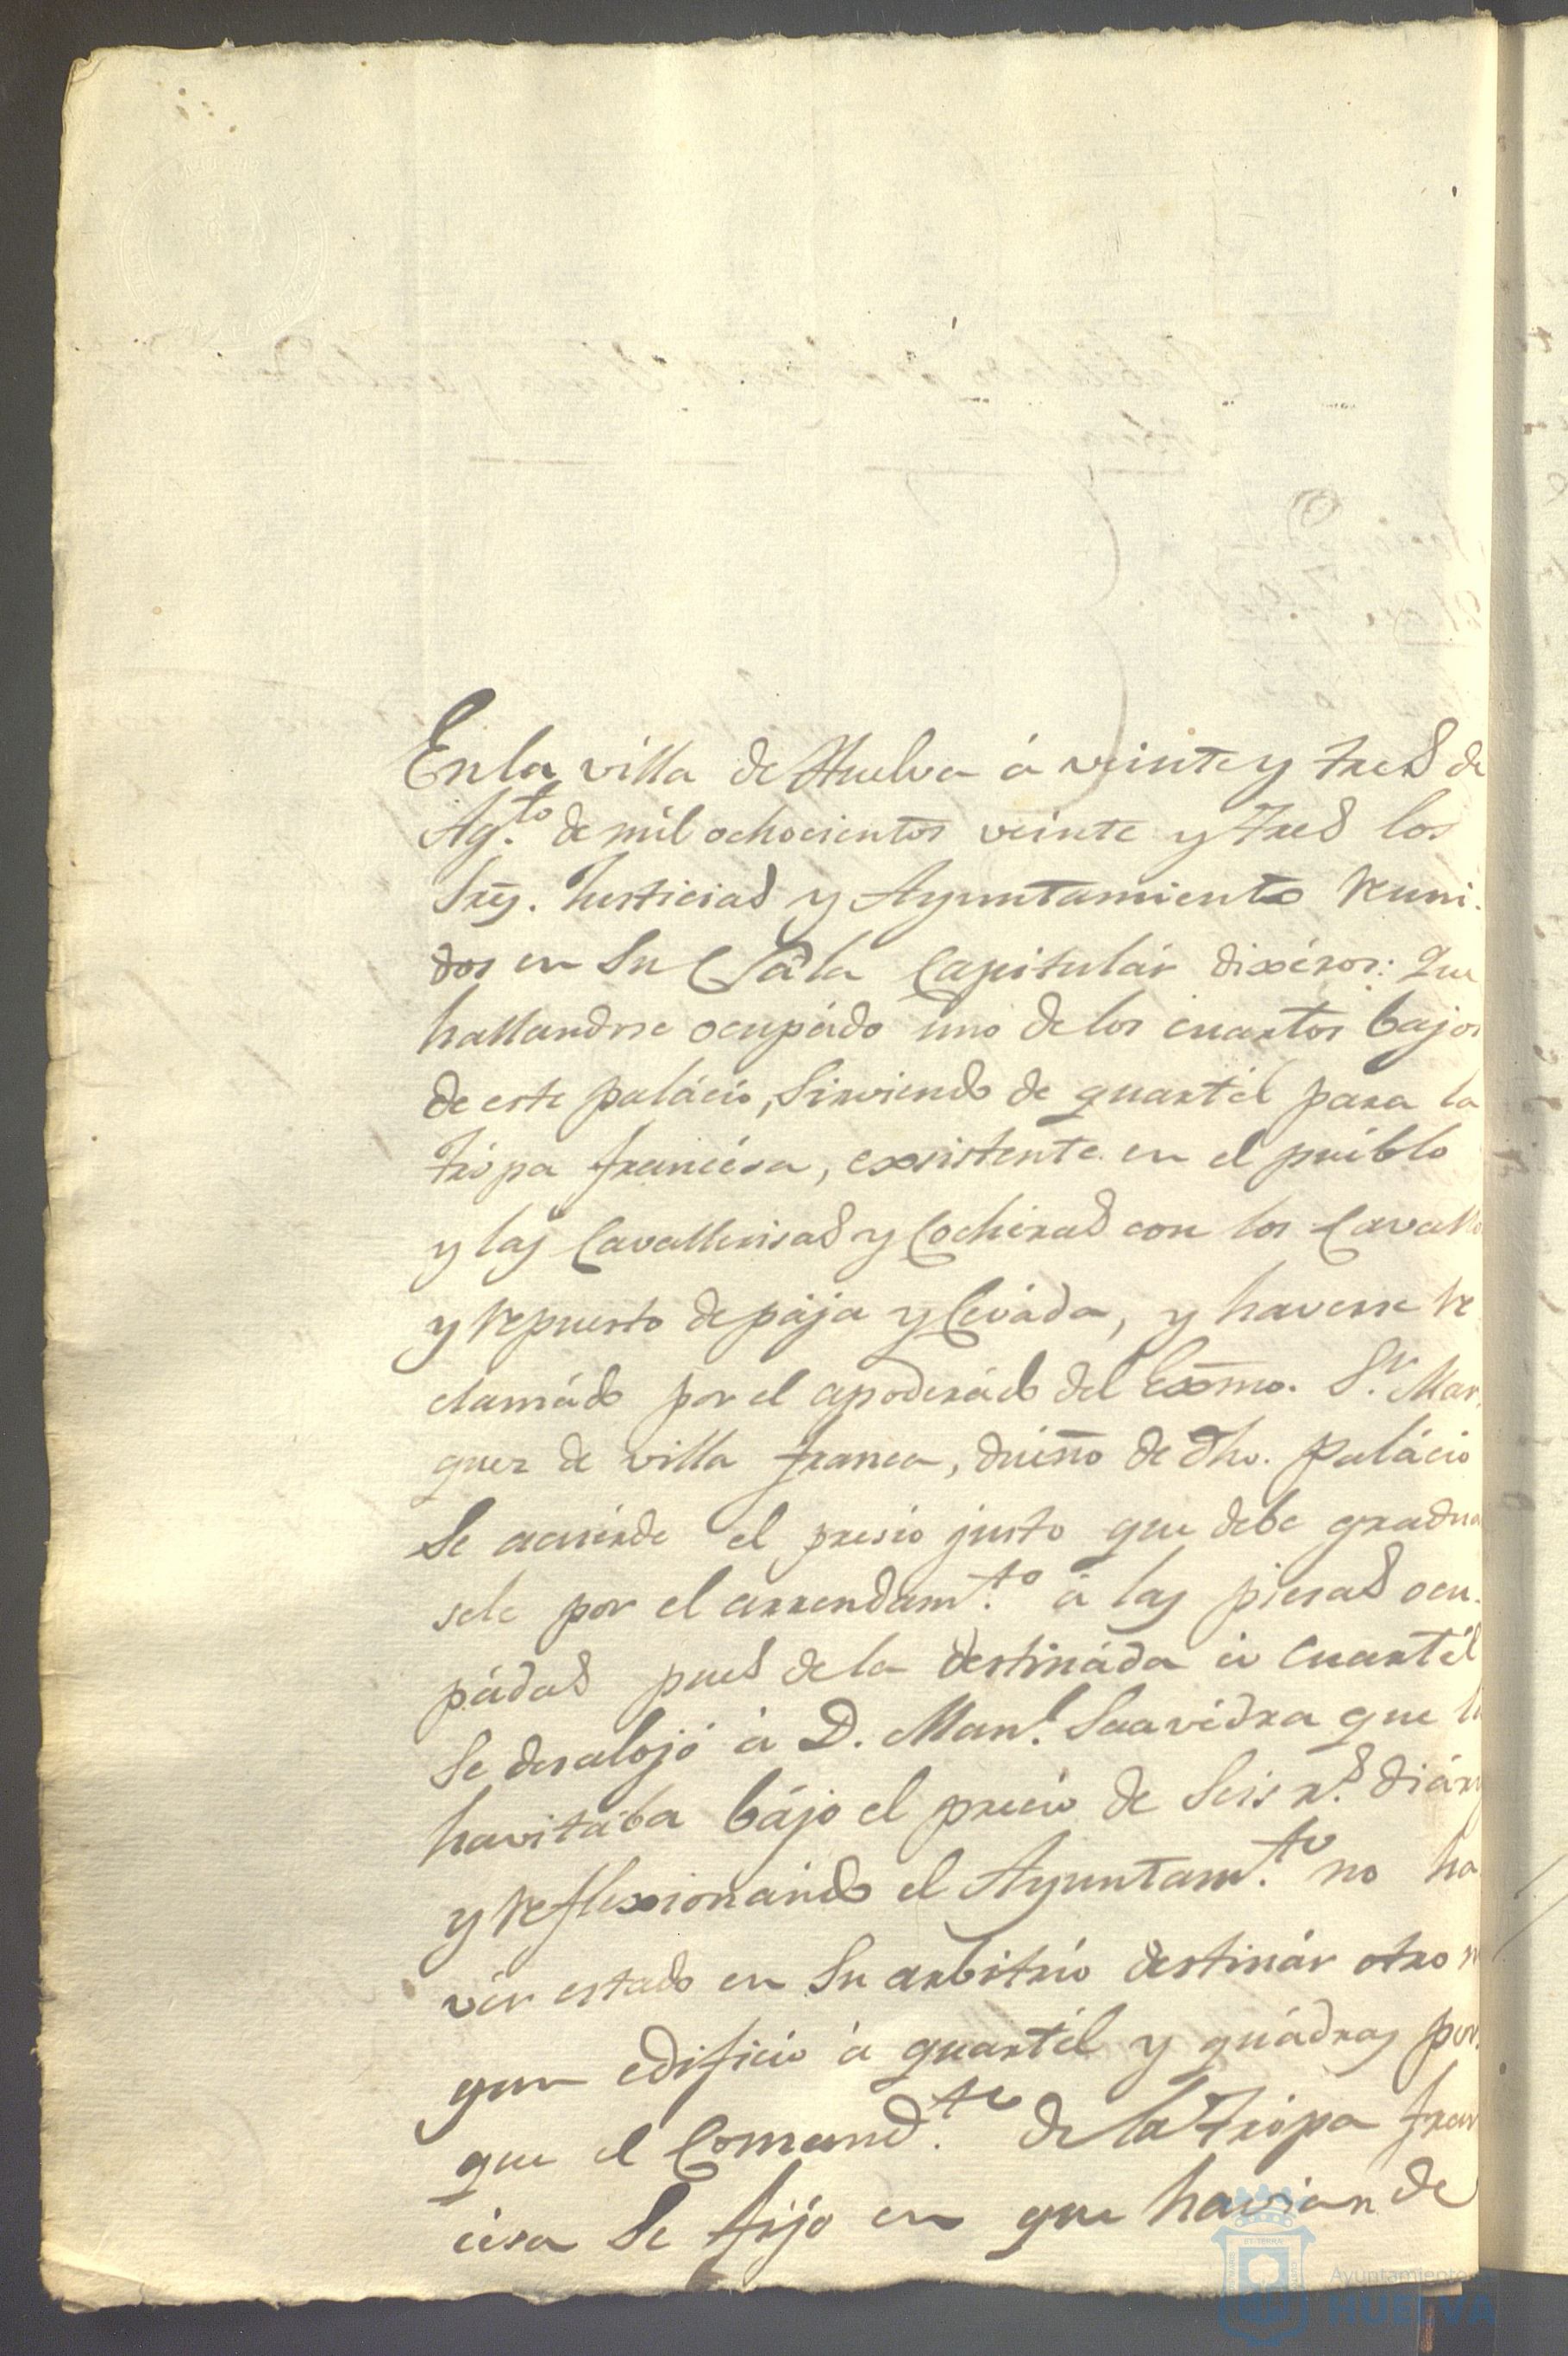 En la villa de Huelva á veinte y tres de
Ag.to de mil ochocientos veinte y tres los
Sres. Justicias y Ayuntamiento reuni-
dos en su Sala Capitulár dixéron: Que
hallandose ocupádo uno de los cuartos bajos
de este palácio, sirviendo de quartél para la
trópa francésa, exsistente en el puéblo
y las Cavallerisas y Cochéras con los Cavall
y repuesto de pája y Ceváda, y haverse re
clamádo por el apoderádo del Exmo. S.r Mar-
quez de villa franca, dueño de dho. palácio
se acuérde el presio justo que debe gradua
sele por el arrendam.to á las piesas ocu-
pádas pues de la destináda á cuartél
se desalojó á D. Man.l Saavédra que l
havitába bájo el precio de seis r.s diár
y reflexsionándo el Ayuntam.to no ha
vér estado en su arbitrio destinár otro n
gun edificio á quartél y quádras por-
que el Comand.te de la trópa fran
césa se fijo en que havian de
Ayuntamiento
HUELVA